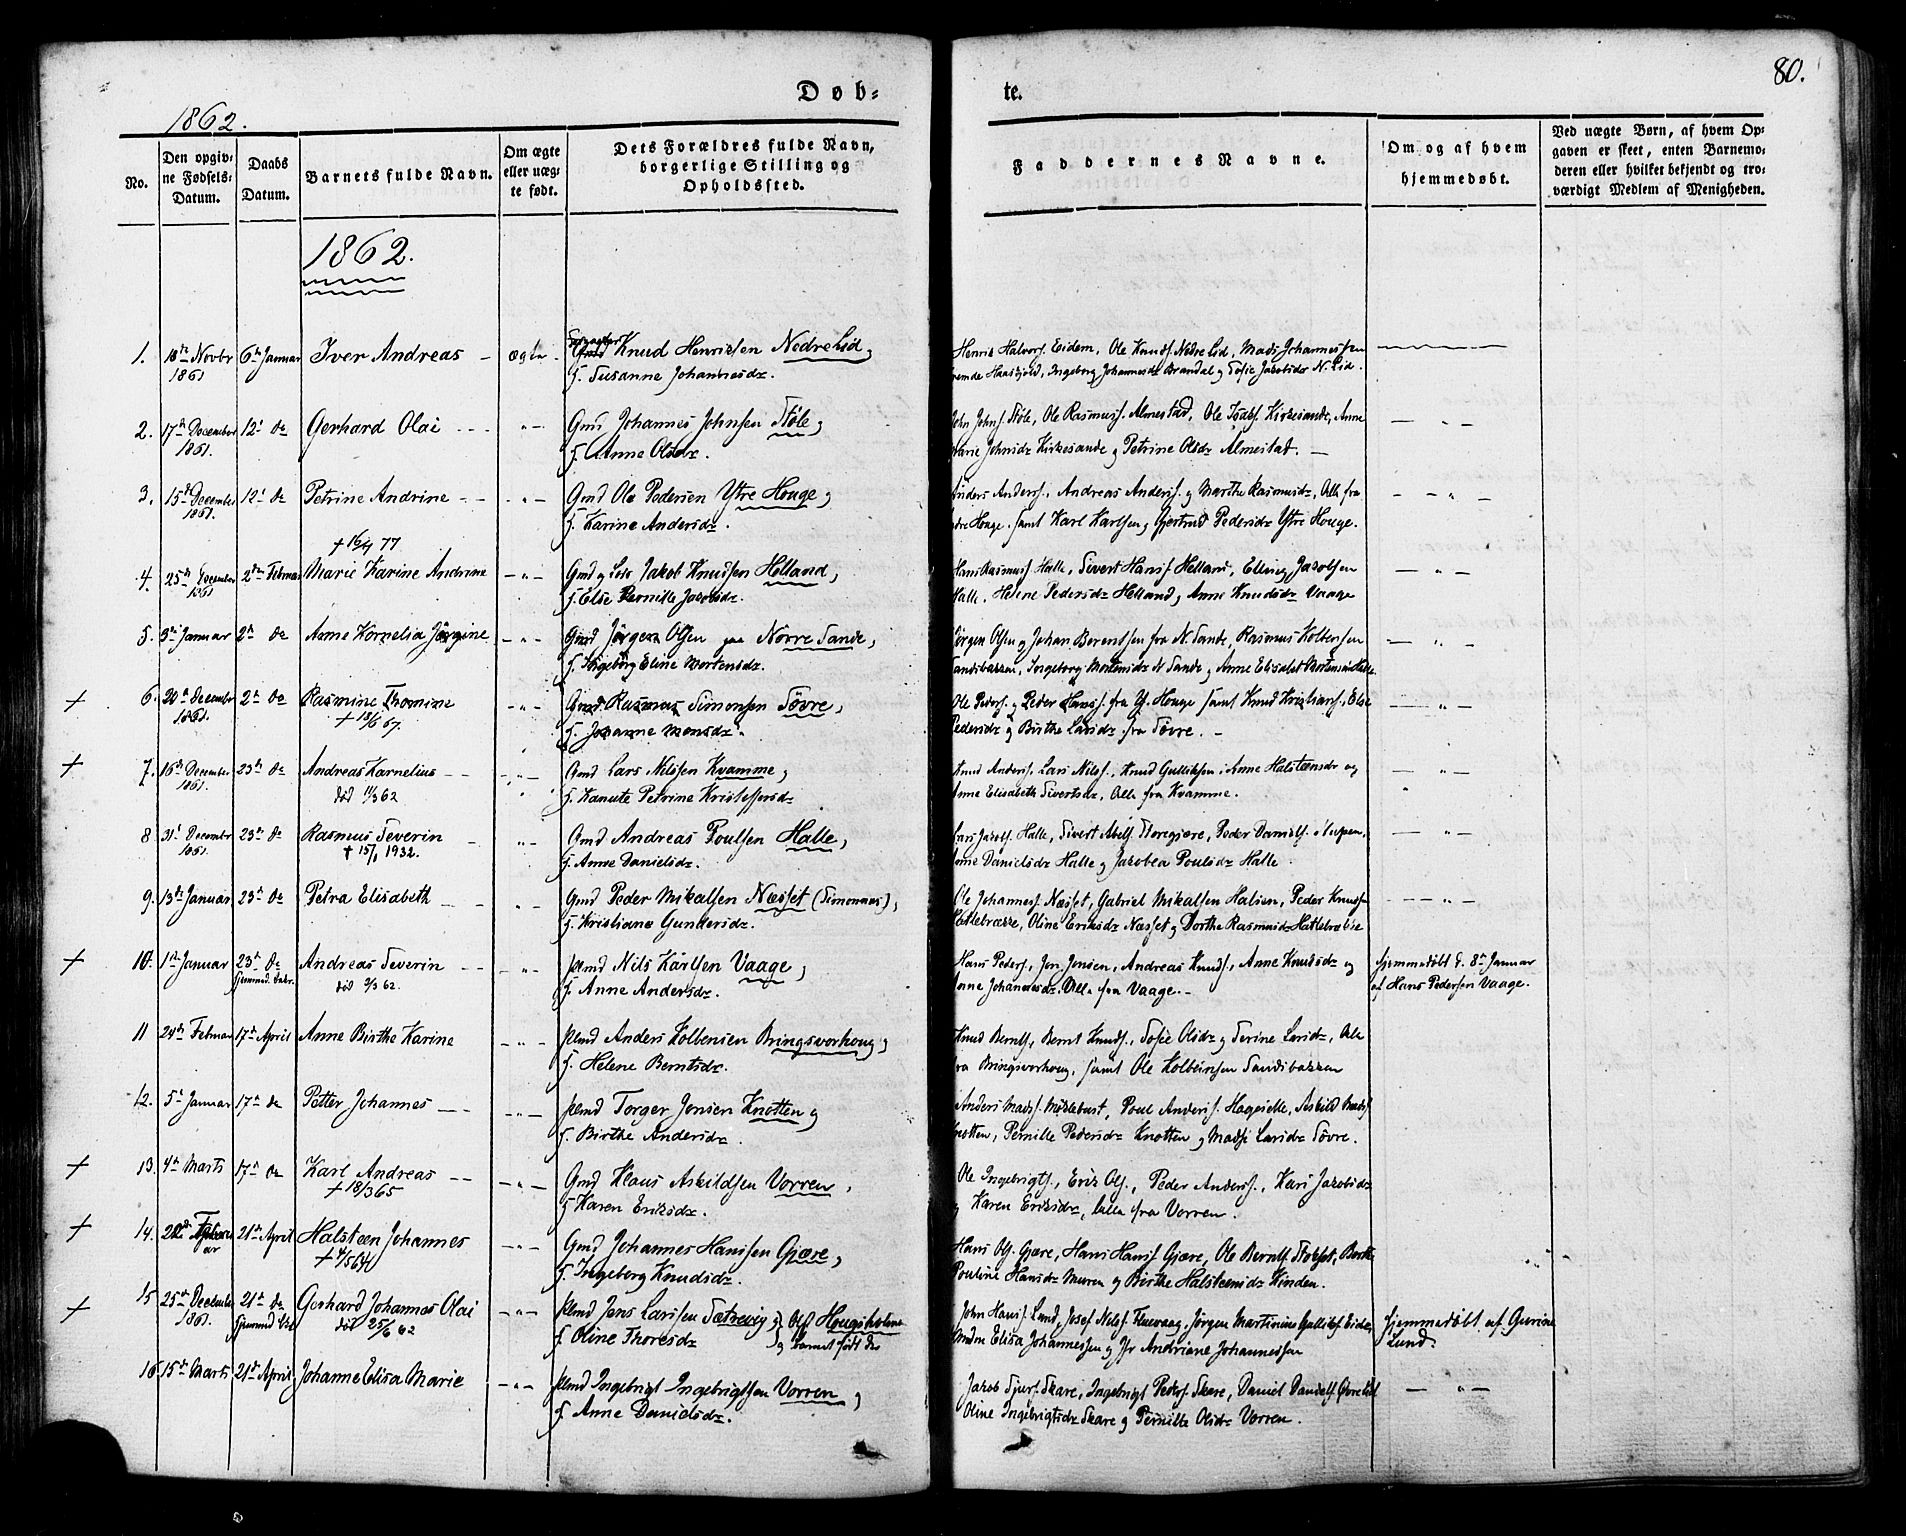 80.
Døb-
te.
1862.
No.
Den opgiv-
ne Fødsels-
Datum.
Daabs
Datum.
Barnets fulde Navn.
Om ægte
eller uæg-
te født.
Dets Forældres fulde Navn,
borgerlige Stilling og
Opholdssted.
Faddernes Navne.
Om og af hvem
hjemmedøbt.
Ved uægte Børn, af hvem Op-
gaven er skeet, enten Barnemo-
deren eller hvilket bekjendt og tro-
værdigt Medlem af Menigheden.
1862.
1. 18de Novbr 6te Januar Iver Andreas - ægte - Knud Henriksen Nedrelid,
1861 f. Susanne Johannesdr.
Henrik Halvors. Eidem, Ole Knuds. Nedre Lid, Mads Johannessen
Haaskjold, Ingeborg Johannesdr Brandal og Sofie Jacobsdr N. Lid.
2. 17de December 12t de Gerhard Olai - - - - " - Gmd Johannes Johnsen Støle,
1861. f. Anne Olsdr.
John Johns. Støle, Ole Rasmuss. Almestad, Ole Isaks. Kirkesande, Anne
Marie Johnsdr Kirkesande og Petrine Olsdr Almestat. - - " -
3. 15de December 12t de Petrine Andrine - - - " - Gmd Ole Pedersen Ytre Houge,
1861. f. Karine Andersdr.
Anders Anders., Andreas Anders. og Marthe Rasmusdr, Alle fra
Ytre Houge. samt Karl Karlsen og Gjertrud Pedersdr Ytre Houge. - - " -
+ 16/4 77
4. 25de December 2den Februar Marie Karine Andrine - " - Gmd og Jakob Knudsen Helland,
1861 f. Else Pernille Jacobsdr.
Hans Rasmus. Halle, Sivert Hans. Helland, Elling Jacobsen
Halle, Helene Pedersdr Helland og Anne Knudsdr Vaage - " -
5. 3de Januar 2den de Anne Kornelia Jørgine - " - Gmd Jørgen Olsen paa Nørre Sande,
f. Ingeborg Eline Mortensdr.
Jørgen Olsen og Johan Berentsen fra N. Sande, Rasmus Kolbensen
Sandsbakken, Ingeborg Mortensdr N Sande og Anne Elisabet Mortensdr - " -
+ 6. 20de December 2den de Rasmine Thomine - " - Gmd Rasmus Simonsen Søvre,
1861. + 13/6 67. f. Johanne Monsdr.
Ole Peders. og Peder Hans. fra Y. Houge samt Knud Kristians., Else
Pedersdr og Birthe Larsdr fra Søvre. - - " -
+ 7. 16de December 23de de Andreas Karnelius - - - " - Gmd Lars Nilssen Kvamme,
1861. død 11/3 62 f. Kanute Petrine Kristoffersdr
Knud Anders., Lars Nils., Knud Gulliksen, Anne Halstensdr og
Anne Elisabeth Sivertsdr, Alle fra Kvamme. - " -
8 31t December 23de de Rasmus Severin - - " - Gmd Andreas Poulsen Halle,
1861. + 15/1 1932. f. Anne Danielsdr.
Lars Jacobs. Halle, Sivert Abels. Storegjære, Peder Daniels.
Anne Danielsdr Halle og Jacobea Poulsdr Halle. - " -
9. 13de Januar 23de de Petra Elisabeth - - - " - Gmd Peder Mikalsen Næsset (Simonnæs),
f. Kristiane Gundersdr.
Ole Johannes. Næsset, Gabriel Mikalsen Halsen, Peder Knuds.
Hatlebrække, Oline Eriksdr Næsset og Dorthe Rasmusdr Hatlebrække - " -
+ 10. 1ste Januar 23de de Andreas Severin - - - " - Plmd Nils Karlsen Vaage,
død 3/3 62. f. Anne Andersdr.
Hans Peders., Jon Jonsen, Andreas Knuds., Anne Knudsdr og
Anne Johannesdr. Alle fra Vaage. -
Hjemmedøbt d. 8de Januar
af Hans Pedersen Vaage.
11 24de Februar 17de April Anne Birthe Karine - " - Plmd Anders Kolbensen Bringsvorhoug,
f. Helene Berntsdr.
Knud Bernts., Bernt Knuds., Sofie Olsdr og Serine Larsdr, Alle
fra Bringsvorhoug, samt Ole Kolbeinsen Sandsbakken
12. 5te Januar 17de de Petter Johannes - - - " - Plmd Torger Jonsen Knotten og
f. Birthe Andersdr.
Anders Mads. Myklebust, Poul Anders. Hageselle, Askild
Knotten, Pernille Pedersdr Knotten og Madsi Larsdr Søvre.
+ 13. 4de Marts 17de de Karl Andreas - - - " - Gmd Klaus Askildsen Vorren,
+ 18/3 65 f. Karen Eriksdr.
Ole Ingebrigts., Erik Ols., Peder Anders., Kari Jacobsdr
og Karen Eriksdr, alle fra Vorren.
+ 14. Februar 21de April Halsteen Johannes - " - Gmd Johannes Hanssen Gjære,
+ 4/5 64 f. Ingeborg Knudsdr.
Hans Ols. Gjære, Hans Hans. Gjære, Ole Bernts. Stokset, Berthe
Pouline Hansdr Muren og Birthe Halsteensdr Kinden.
+ 15 25de December 21de de Gerhard Johannes Olai - " - Plmd Jens Larssen Sætrevig, Ols. Hougsholmen
1861. død 25/6 62 f. Oline Thoresdr og barnet født der
John Hans. Lund, Josef Nils. Kluevaag, Jørgen Martinius Gulliks. Eide,
Madm Elisa Johannessen og Jfr Andriane Johannessen
Hjemmedøbt af Gurine
Lund.
16. 15de Marts 21de April Johanne Elisa Marie - " - Plmd Ingebrigt Ingebrigtsen Vorren,
f. Anne Danielsdr.
Jakob Sjurs. Skare, Ingebrigt Peders. Skare, Daniel Daniels. Øvrelid
Oline Ingebrigtsdr Skare og Pernille Olsdr Vorren. - " -